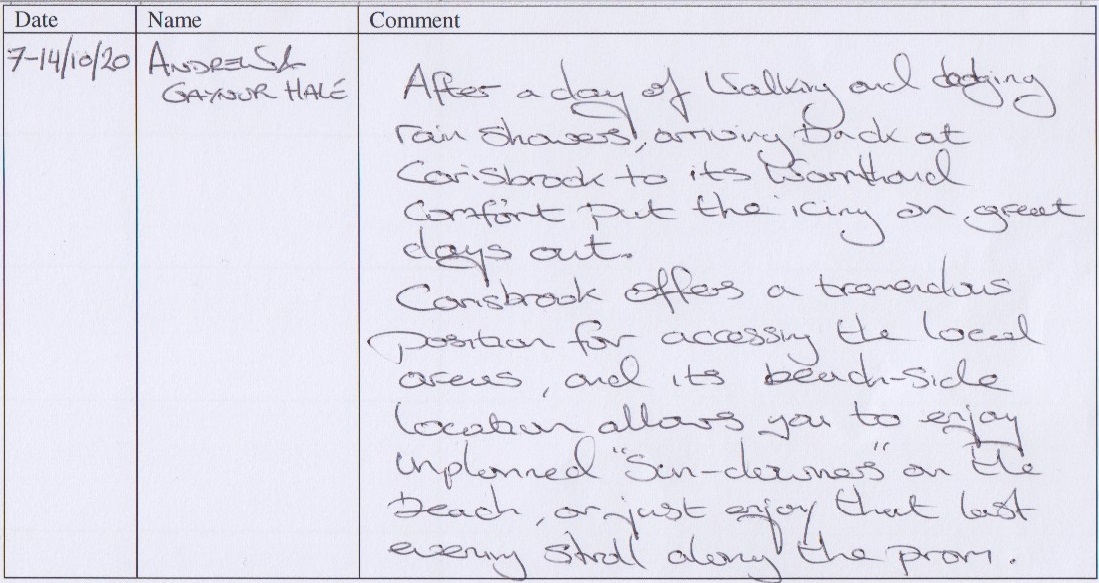 Date Name Comment
7-14/10/20 ANDREW &
GAYNOR HALE
After a day of walking and dodging
rain showers, arriving back at
Carisbrook to its warmth and
comfort put the icing on great
days out.
Carisbrook offers a tremendous
position for accessing the local
areas, and its beach-side
location allows you to enjoy
unplanned "Sun-downers" on the
beach, or just enjoy that last
evening stroll along the prom.